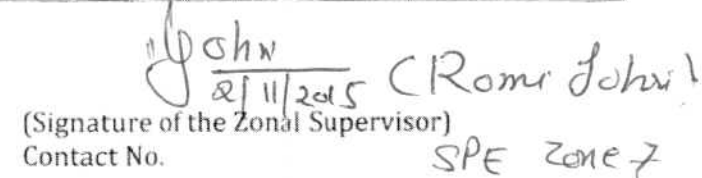 John
2/11/2015 (Romi John)
(Signature of the Zonal Supervisor)
Contact No. SPE Zone 7